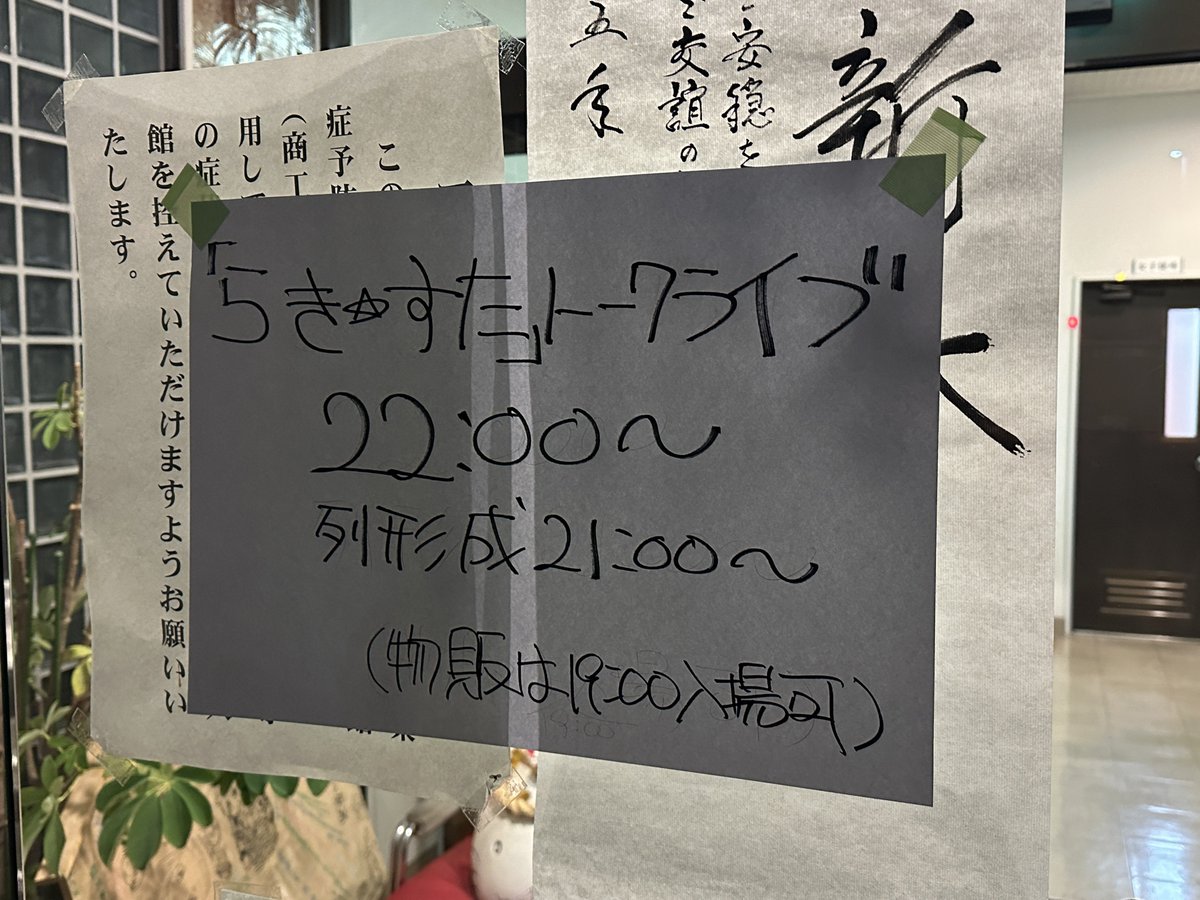 「らき☆すた」トークライブ
22:00〜
列形成 21:00〜
(物販は19:00入場可)
五年
安穏を
交誼の
新
この
症予防
(商工
用して
の症
館を控えていただけますようお願いい
たします。